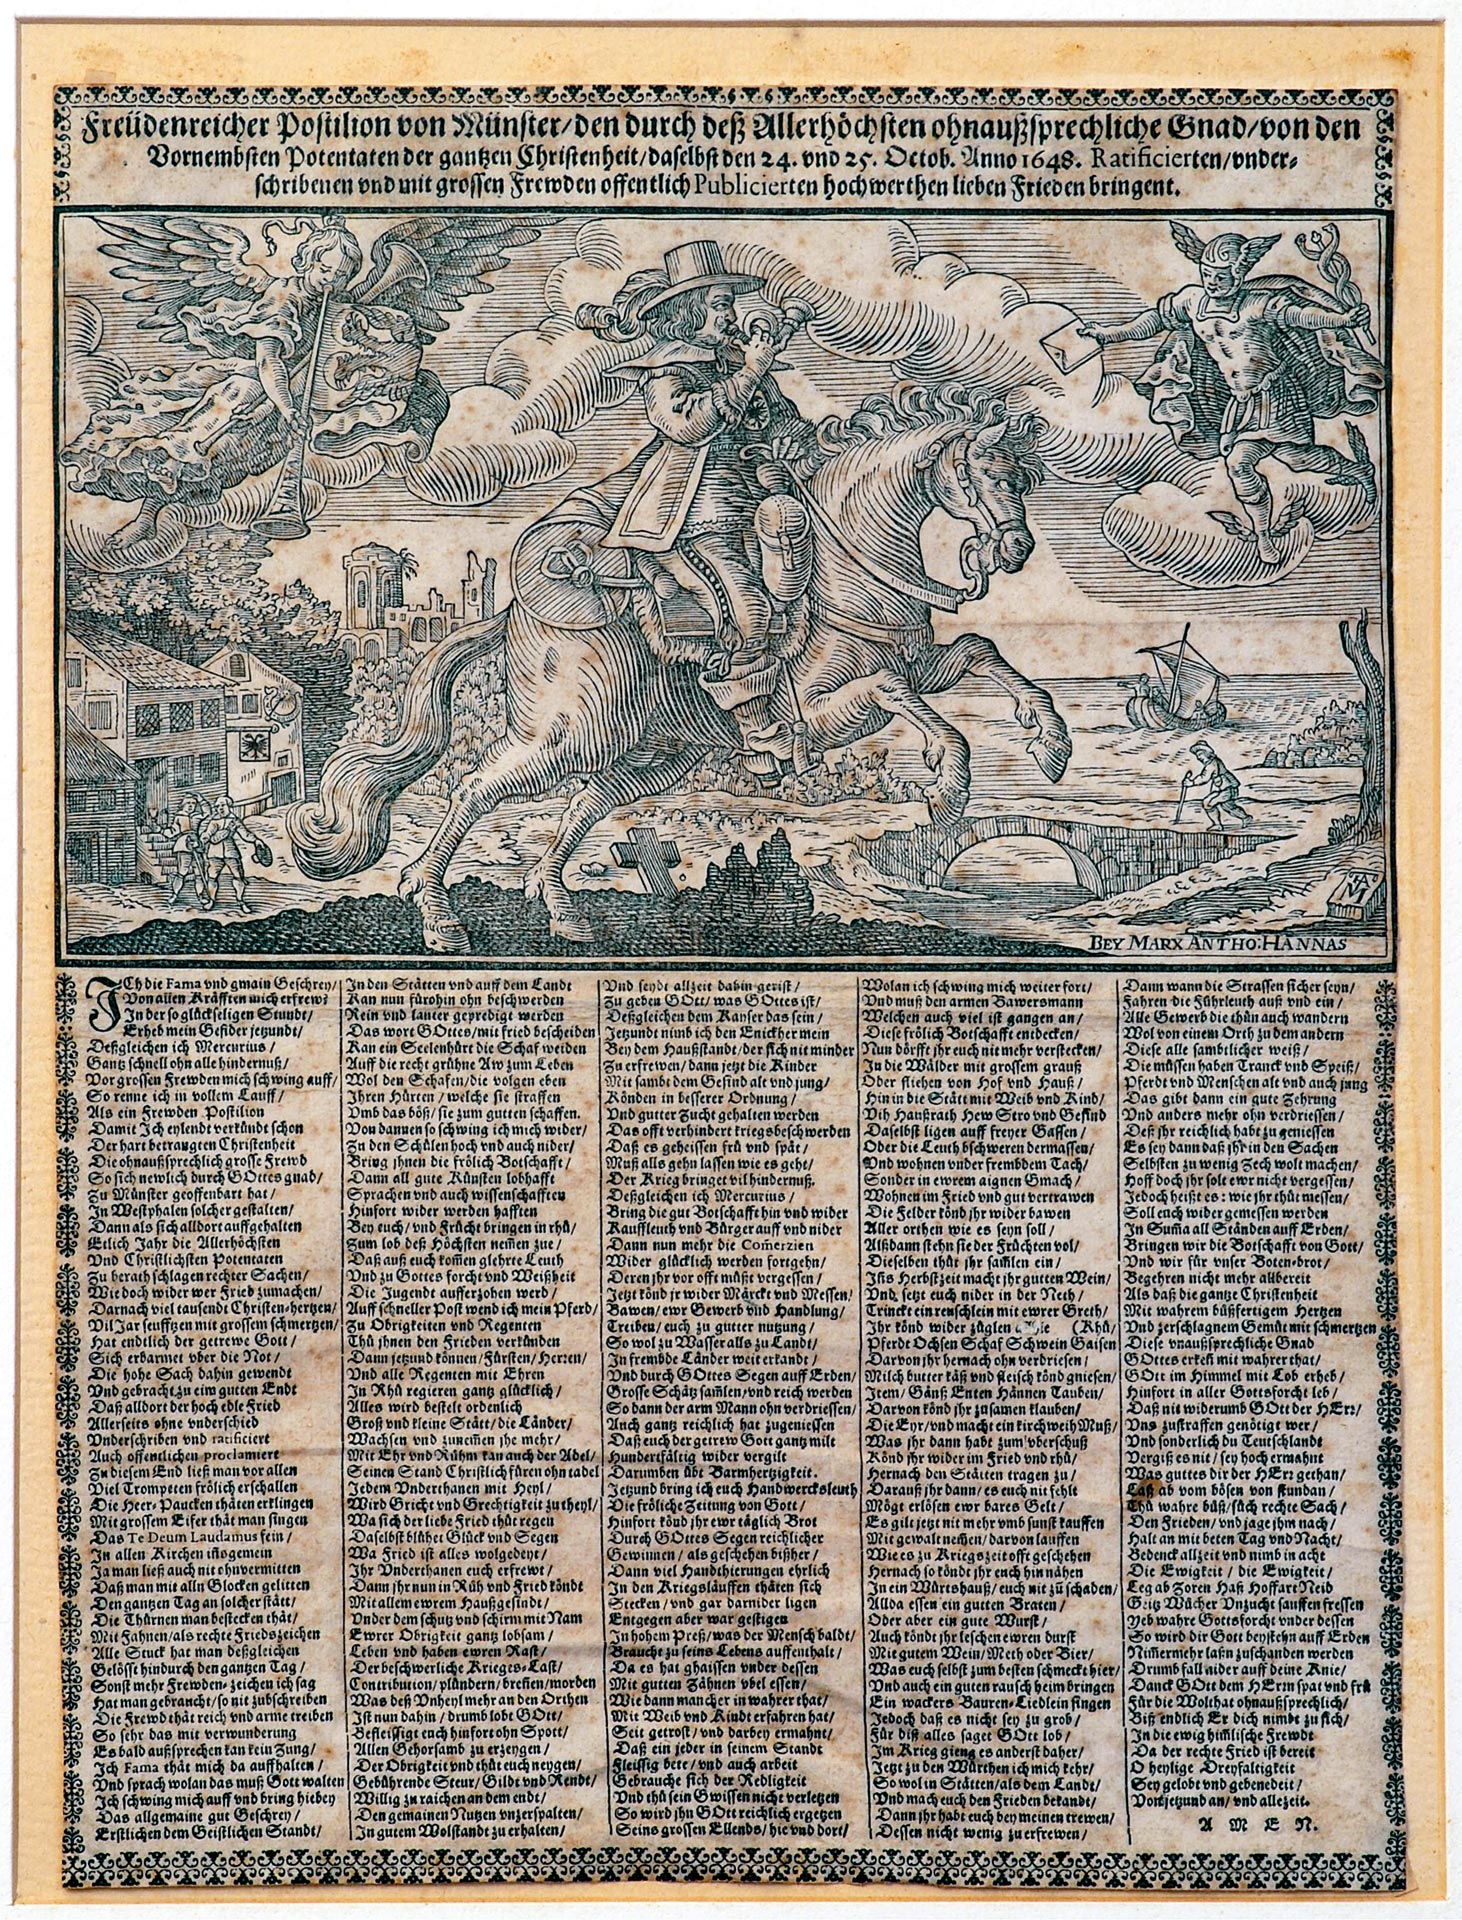 Freüdenreicher Postilion von Münster/den durch deß Allerhöchsten ohnaußsprechliche Gnad/von den
Vornembsten Potentaten der gantzen Christenheit/daselbst den 24. vnd 25. Octob. Anno 1648. Ratificierten/vnder-
schribenen vnd mit grossen Frewden offentlich Publicierten hochwerthen lieben Frieden bringent.
BEY MARX ANTHO: HANNAS
ICh die Fama vnd gmain Geschrey/
Von allen Kräfften mich erfrew?
In der so glückseligen Stundt/
Erheb mein Gefider jetzundt/
Deßgleichen ich Mercurius/
Gantz schnell ohn alle hindernuß/
Vor grossen Frewden mich schwing auff/
So renne ich in vollem Lauff/
Als ein Frewden Postilion
Damit Ich eylendt verkündt schon
Der hart betrangten Christenheit
Die ohnaußsprechlich grosse Frewd
So sich newlich durch GOttes gnad/
Zu Münster geoffenbart hat/
In Westphalen solcher gestalten/
Dann als sich alldort auffgehalten
Etlich Jahr die Allerhöchsten
Vnd Christlichsten Potentaten
Zu berathschlagen rechter Sachen/
Wie doch wider wer Fried zumachen/
Darnach viel tausendt Christen-hertzen/
Vil Jar seufftzen mit grossem schmertzen/
Hat endtlich der getrewe Gott/
Sich erbarmet vber die Not/
Die hohe Sach dahin gewendt
Vnd gebracht zu eim gutten Endt
Daß alldort der hoch edle Fried
Allerseits ohne vnderschied
Vnderschriben vnd ratificiert
Auch offentlichen proclamiert
Zu diesem End ließ man vor allen
Viel Trompeten frölich erschallen
Die Heer Paucken thäten erklingen
Mit grossem Eifer thät man singen
Das Te Deum Laudamus fein/
In allen Kirchen insgemein
Ja man ließ auch nit ohnvermitten
Daß man mit alln Glocken gelitten
Den gantzen Tag an solcher stätt/
Die Thürnen man bestecken thät/
Mit Fahnen/als rechte Friedszeichen
Alle Stuck hat man deßgleichen
Gelösst hindurch den gantzen Tag/
Sonst mehr Frewden-zeichen ich sag
Hat man gebraucht/so nit zubschreiben
Die Frewd thät reich vnd arme treiben
So sehr das mit verwunderung
Es bald außsprechen kan kein Zung/
Ich Fama thät mich da auffhalten/
Vnd sprach wolan das muß Gott walten
Ich schwing mich auff vnd bring hiebey
Das allgemeine gut Geschrey/
Erstlichen dem Geistlichen Standt/
In den Stätten vnd auff dem Landt
Kan nun fürohin ohn beschwerden
Rein vnd lauter gepredigt werden
Das wort GOttes/mit fried bescheiden
Kan ein Seelenhürt die Schaf weiden
Auff die recht grühne Aw zum Leben
Wol den Schafen/die volgen eben
Ihren Hürten/welche sie straffen
Vmb das böß/sie zum gutten schaffen.
Von dannen so schwing ich mich wider/
Zu den Schülen hoch vnd auch nider/
Bring jhnen die frölich Botschafft/
Dann all gute Künsten lobhafft
Sprachen vnd auch wissenschafften
Hinfort wider werden hafften
Bey euch/vnd Frücht bringen in rhü/
Zum lob deß Höchsten nemen zue/
Daß auß euch komen glehrte Leuth
Vnd zu Gottes forcht vnd Weißheit
Die Jugendt aufferzohen werd/
Auff schneller Post wend ich mein Pferd/
Zu Obrigkeiten vnd Regenten
Thü jhnen den Frieden verkünden
Dann jetzund können/Fürsten/Herren/
Vnd alle Regenten mit Ehren
In Rhü regieren gantz glücklich/
Alles wird bestelt ordenlich
Groß vnd kleine Stätt/die Länder/
Wachsen vnd zunemen jhe mehr/
Mit Ehr vnd Rühm kan auch der Adel/
Seinen Stand Christlich füren ohn tadel
Jedem Vnderthanen mit Heyl/
Wird Gricht vnd Grechtigkeit zu theyl/
Wa sich der liebe Fried thüt regen
Daselbst blühet Glück vnd Segen
Wa Fried ist alles wolgedeyt/
Ihr Vnderthanen euch erfrewt/
Dann jhr nun in Rüh vnd Fried köndt
Mit allem ewrem Haußgesindt/
Vnder dem schutz vnd schirm mit Nam
Ewrer Obrigkeit gantz lobsam/
Leben vnd haben ewren Rast/
Der beschwerliche Krieges-Last/
Contribution/plündern/brenen/morden
Was deß Vnheyl mehr an den Orthen
Ist nun dahin/drumb lobt GOtt/
Befleissigt euch hinfort ohn Spott/
Allen Gehorsamb zu erzeygen/
Der Obrigkeit vnd thüt euch neygen/
Gebührende Steur/Gildt vnd Rendt/
Willig zu raichen an dem endt/
Den gemainen Nutzen vnzerspalten/
In gutem Wolstandt zu erhalten/
Vnd seydt allzeit dahin gerist/
Zu geben GOtt/was GOttes ist/
Deßgleichen dem Kayser das sein/
Jetzundt nimb ich den Enicker mein
Bey dem Haußstandt/der sich nit minder
Zu erfrewen/dann jetzt die Kinder
Mit sambt dem Gesind alt vnd jung/
Könden in besserer Ordnung/
Vnd gutter Zucht gehalten werden
Das offt verhindert kriegsbeschwerden
Daß es geheissen frü vnd spät/
Muß alls gehn lassen wie es geht/
Der Krieg bringet vil hindernuß.
Deßgleichen ich Mercurius/
Bring die gut Botschafft hin vnd wider
Kauffleuth vnd Bürger auff vnd nider
Dann nun mehr die Comerzien
Wider glücklich werden fortgehn/
Deren jhr vor offt müßt vergessen/
Jetzt könd jr wider Märckt vnd Messen/
Bawen/ewr Gewerb vnd Handlung/
Treiben/euch zu gutter nutzung/
So wol zu Wasser alls zu Landt/
In frembde Länder weit erkandt/
Vnd durch GOttes Segen auff Erden/
Grosse Schätz samlen/vnd reich werden
So dann der arm Mann ohn verdriessen/
Auch gantz reichlich hat zugeniessen
Daß euch der getrew Gott gantz milt
Hundertfältig wider vergilt
Darumben übt Barmhertzigkeit.
Jetzund bring ich euch Handwercksleuth
Die fröliche Zeitung von Gott/
Hinfort könd jhr ewr täglich Brot
Durch GOttes Segen reichlicher
Gewinnen/als geschehen bißher/
Dann viel Handthierungen ehrlich
In den Kriegsläuffen thäten sich
Stecken/vnd gar darnider ligen
Entgegen aber war gestigen
In hohem Preß/was der Mensch baldt/
Braucht zu seins Lebens auffenthalt/
Da es hat ghaissen vnder dessen
Mit gutten Zähnen vbel essen/
Wie dann mancher in wahrer that/
Mit Weib vnd Kindt erfahren hat/
Seit getrost/vnd darbey ermahnt/
Daß ein jeder in seinem Standt
Fleissig bete/vnd auch arbeit
Gebrauche sich der Redligkeit
Vnd thü sein Gwissen nicht verletzen
So wird jhn GOtt reichlich ergetzen
Seins grossen Ellends/hie vnd dort/
Wolan ich schwing mich weiter fort/
Vnd muß den armen Bawersmann
Welchen auch viel ist gangen an/
Diese frölich Botschafft entdecken/
Nun dörfft jhr euch nit mehr verstecken/
In die Wälder mit grossem grauß
Oder fliehen von Hof vnd Hauß/
Hin in die Stätt mit Weib vnd Kind/
Vih Haußrath Hew Stro vnd Gesind
Daselbst ligen auff freyer Gassen/
Oder die Leuth bschweren dermassen/
Vnd wohnen vnder frembdem Tach/
Sonder in ewrem aignen Gmach/
Wohnen im Fried vnd gut vertrawen
Die Felder könd jhr wider bawen
Aller orthen wie es seyn soll/
Alßdann stehn sie der Früchten vol/
Dieselben thüt jhr samlen ein/
Ists Herbstzeit macht jhr gutten Wein/
Vnd setzt euch nider in der Neth/
Trinckt ein renschlein mit ewrer Greth/
Ihr könd wider züglen (Khü/
Pferdt Ochsen Schaf Schwein Gaisen
Darvon jhr hernach ohn verdriesen/
Milch butter käß vnd fleisch könd gniesen/
Item/Gänß Enten Hännen Tauben/
Darvon könd jhr zusamen klauben/
Die Eyr/vnd macht ein kirchweih Muß/
Was jhr dann habt zum vberschuß
Könd jhr wider im Fried vnd rhü/
Hernach den Stätten tragen zu/
Darauß jhr dann/es euch nit fehle
Mögt erlösen ewr bares Gelt/
Es gilt jetzt nit mehr vmb sunst kauffen
Mit gewalt nemen/darvon lauffen
Wie es zu Kriegszeit offt geschehen
Hernach so köndt jhr euch hin nähen
In ein Würtshauß/euch nit zu schaden/
Allda essen ein gutten Braten/
Oder aber ein gute Wurst/
Auch köndt jhr leschen ewren durst
Mit gutem Wein/Meth oder Bier/
Was euch selbst zum besten schmeckt hier/
Vnd auch ein guten rausch heim bringen
Ein wackers Bauren-Liedlein singen
Jedoch daß es nicht sey zu grob/
Für diß alles saget GOtt lob/
Im Krieg gieng es anderst daher/
Jetzt zu den Würthen ich mich kehr/
So wol in Stätten/als dem Landt/
Vnd mach euch den Frieden bekandt/
Dann jhr habt euch bey meinen trewen/
Dessen nicht wenig zu erfrewen/
Dann wann die Strassen sicher seyn/
Fahren die Führleuth auß vnd ein/
Alle Gewerb die thün auch wandern
Wol von einem Orth zu dem andern
Diese alle sambtlicher weiß/
Die müssen haben Tranck vnd Speiß/
Pferdt vnd Menschen alt vnd auch jung
Das gibt dann ein gute Zehrung
Vnd anders mehr ohn verdriessen/
Deß jhr reichlich habt zu geniessen
Es sey dann daß jhr in den Sachen
Selbsten zu wenig Zech wolt machen/
Hoff doch jhr solt ewr nicht vergessen/
Jedoch heißt es: wie jhr thüt messen/
Soll euch wider gemessen werden
In Suma all Ständen auff Erden/
Bringen wir die Botschafft von Gott/
Vnd wir für vnser Boten-brot/
Begehren nicht mehr allbereit
Als daß die gantze Christenheit
Mit wahrem büßfertigem Hertzen
Vnd zerschlagnem Gemüt mit schmertzen
Diese vnaußsprechliche Gnad
GOttes erken mit wahrer that/
GOtt im Himmel mit Lob erheb/
Hinfort in aller Gottsforcht leb/
Daß nit widerumb GOtt der HErr/
Vns zustraffen genötigt wer/
Vnd sonderlich du Teutschlandt
Vergiß es nit/sey hoch ermahnt
Was guttes dir der HErr gethan/
Laß ab vom bösen von stundan/
Thü wahre büß/süch rechte Sach/
Den Frieden/vnd jage jhm nach/
Halt an mit beten Tag vnd Nacht/
Bedenck allzeit vnd nimb in acht
Die Ewigkeit/die Ewigkeit/
Leg ab Zoren Haß Hoffart Neid
Geitz Wücher Vnzucht sauffen fressen
Yeb wahre Gottsforcht vnder dessen
So wird dir Gott beystehn auff Erden
Nimermehr laßn zuschanden werden
Drumb fall nider auff deine Knie/
Danck GOtt dem HErrn spat vnd frü
Für die Wolthat ohnaußsprechlich/
Biß endlich Er dich nimbt zu sich/
In die ewig himlische Frewdt
Da der rechte Fried ist bereit
O heylige Dreyfaltigkeit
Sey gelobt vnd gebenedeit/
Von jetzund an/vnd allezeit.
A M E N.